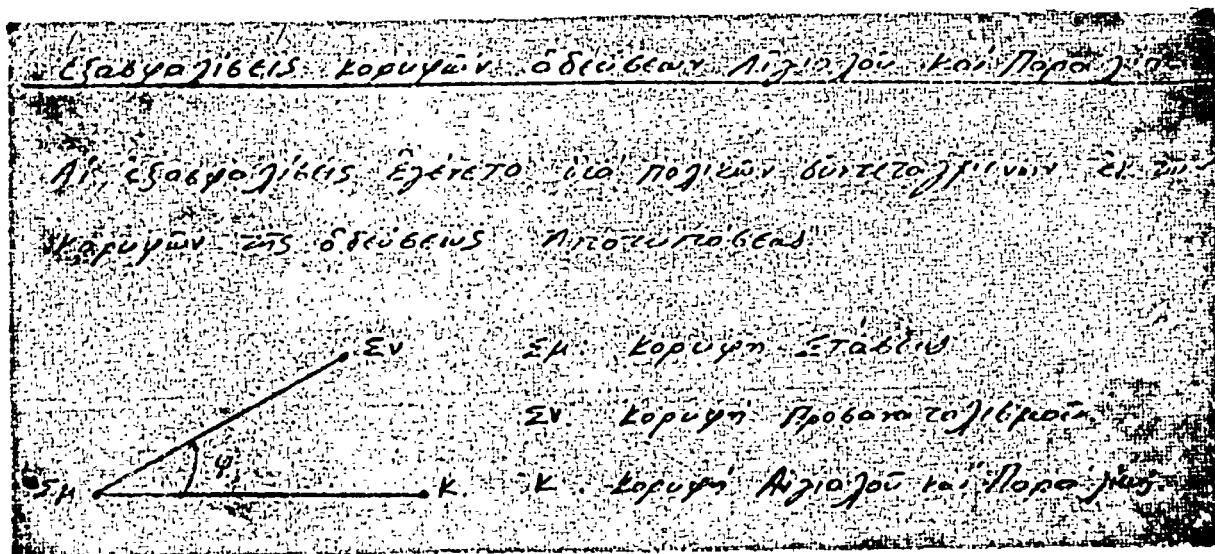 Ἐξασφαλίσεις κορυφῶν ὁδεύσεων Αἰγιαλοῦ καί Παραλίας
Αἱ ἐξασφαλίσεις ἐγένετο διά πολικῶν συντεταγμένων ἐκ τῶν
κορυφῶν τῆς ὁδεύσεως Αποτυπώσεως
Σν Σμ: Κορυφή Στάσεως
Σν. Κορυφή Προσανατολισμοῦ
Σμ φ Κ. Κ. Κορυφή Αἰγιαλοῦ καί Παραλίας